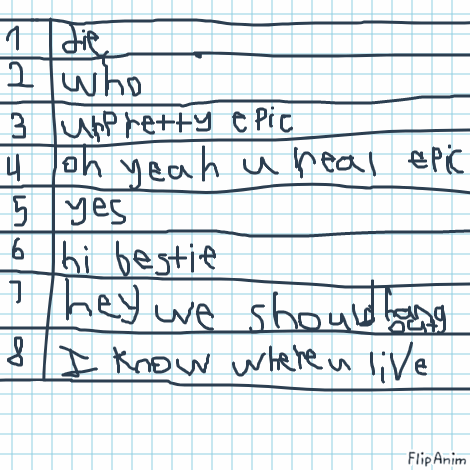 1 die
2 who
3 ur pretty epic
4 oh yeah u real epic
5 yes
6 hi bestie
7 hey we should hang out
8 I know where u live
FlipAnim